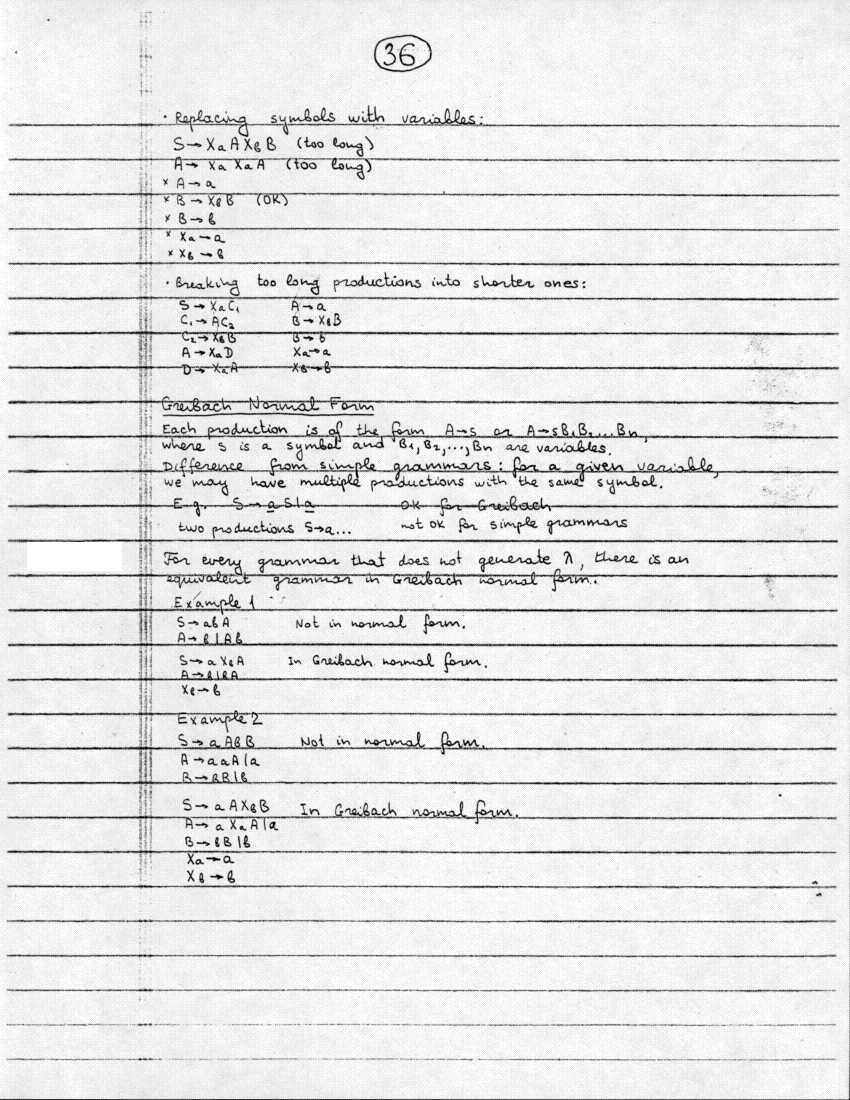 36
· Replacing symbols with variables:
S → XaAXbB (too long)
A → XaXaA (too long)
× A → a
× B → XbB (OK)
× B → b
× Xa → a
× Xb → b
· Breaking too long productions into shorter ones:
S → XaC₁ A → a
C₁ → AC₂ B → XbB
C₂ → XbB B → b
A → XaD Xa → a
D → XaA Xb → b
Greibach Normal Form
Each production is of the form A→s or A→sB₁B₂...Bn,
where s is a symbol and B₁, B₂,..., Bn are variables.
Difference from simple grammars: for a given variable,
we may have multiple productions with the same symbol.
E.g. S → aS|a OK for Greibach
two productions S→a... not OK for simple grammars
For every grammar that does not generate λ, there is an
equivalent grammar in Greibach normal form.
Example 1
S → abA Not in normal form.
A → b|Ab
S → aXbA In Greibach normal form.
A → b|bA
Xb → b
Example 2
S → aAbB Not in normal form.
A → aaA|a
B → bB|b
S → aAXbB In Greibach normal form.
A → aXaA|a
B → bB|b
Xa → a
Xb → b